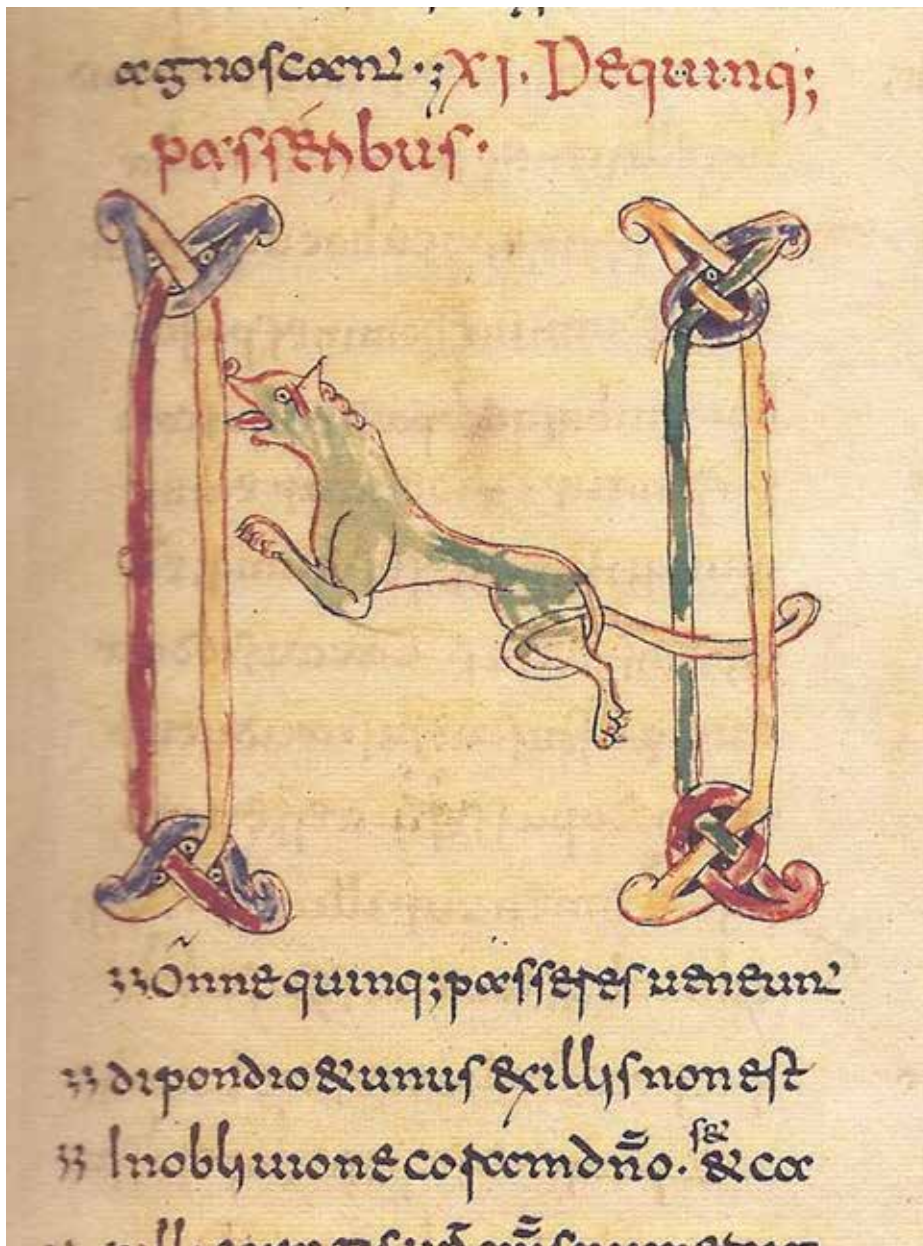 agnoscant·; XI· De quinq;
passeribus·
N
onne quinq; passeres ueneunt
dipondio & unus ex illis non est
In obliuione coram dño· s& & ca